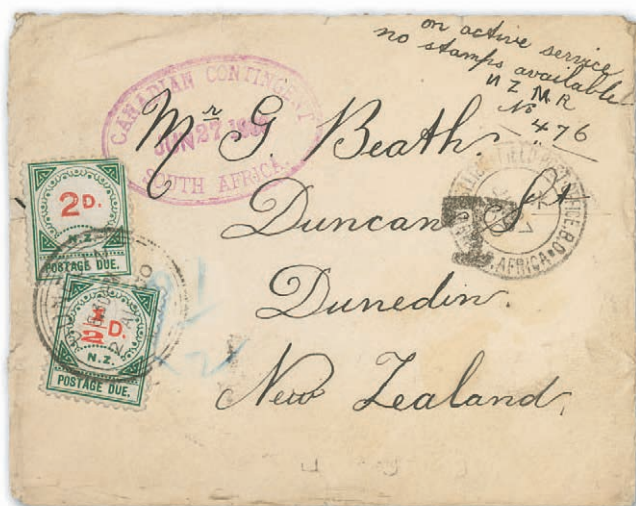 on active service
no stamps available
N Z M R
No 476
CANADIAN CONTINGENT
JUN 27
SOUTH AFRICA.
Mr G. Beath.
Duncan St
Dunedin.
New Zealand.
2D.
N.Z.
POSTAGE DUE.
1/2 D.
N.Z.
POSTAGE DUE.
FIELD POST OFFICE. B.O.
S. AFRICA
T